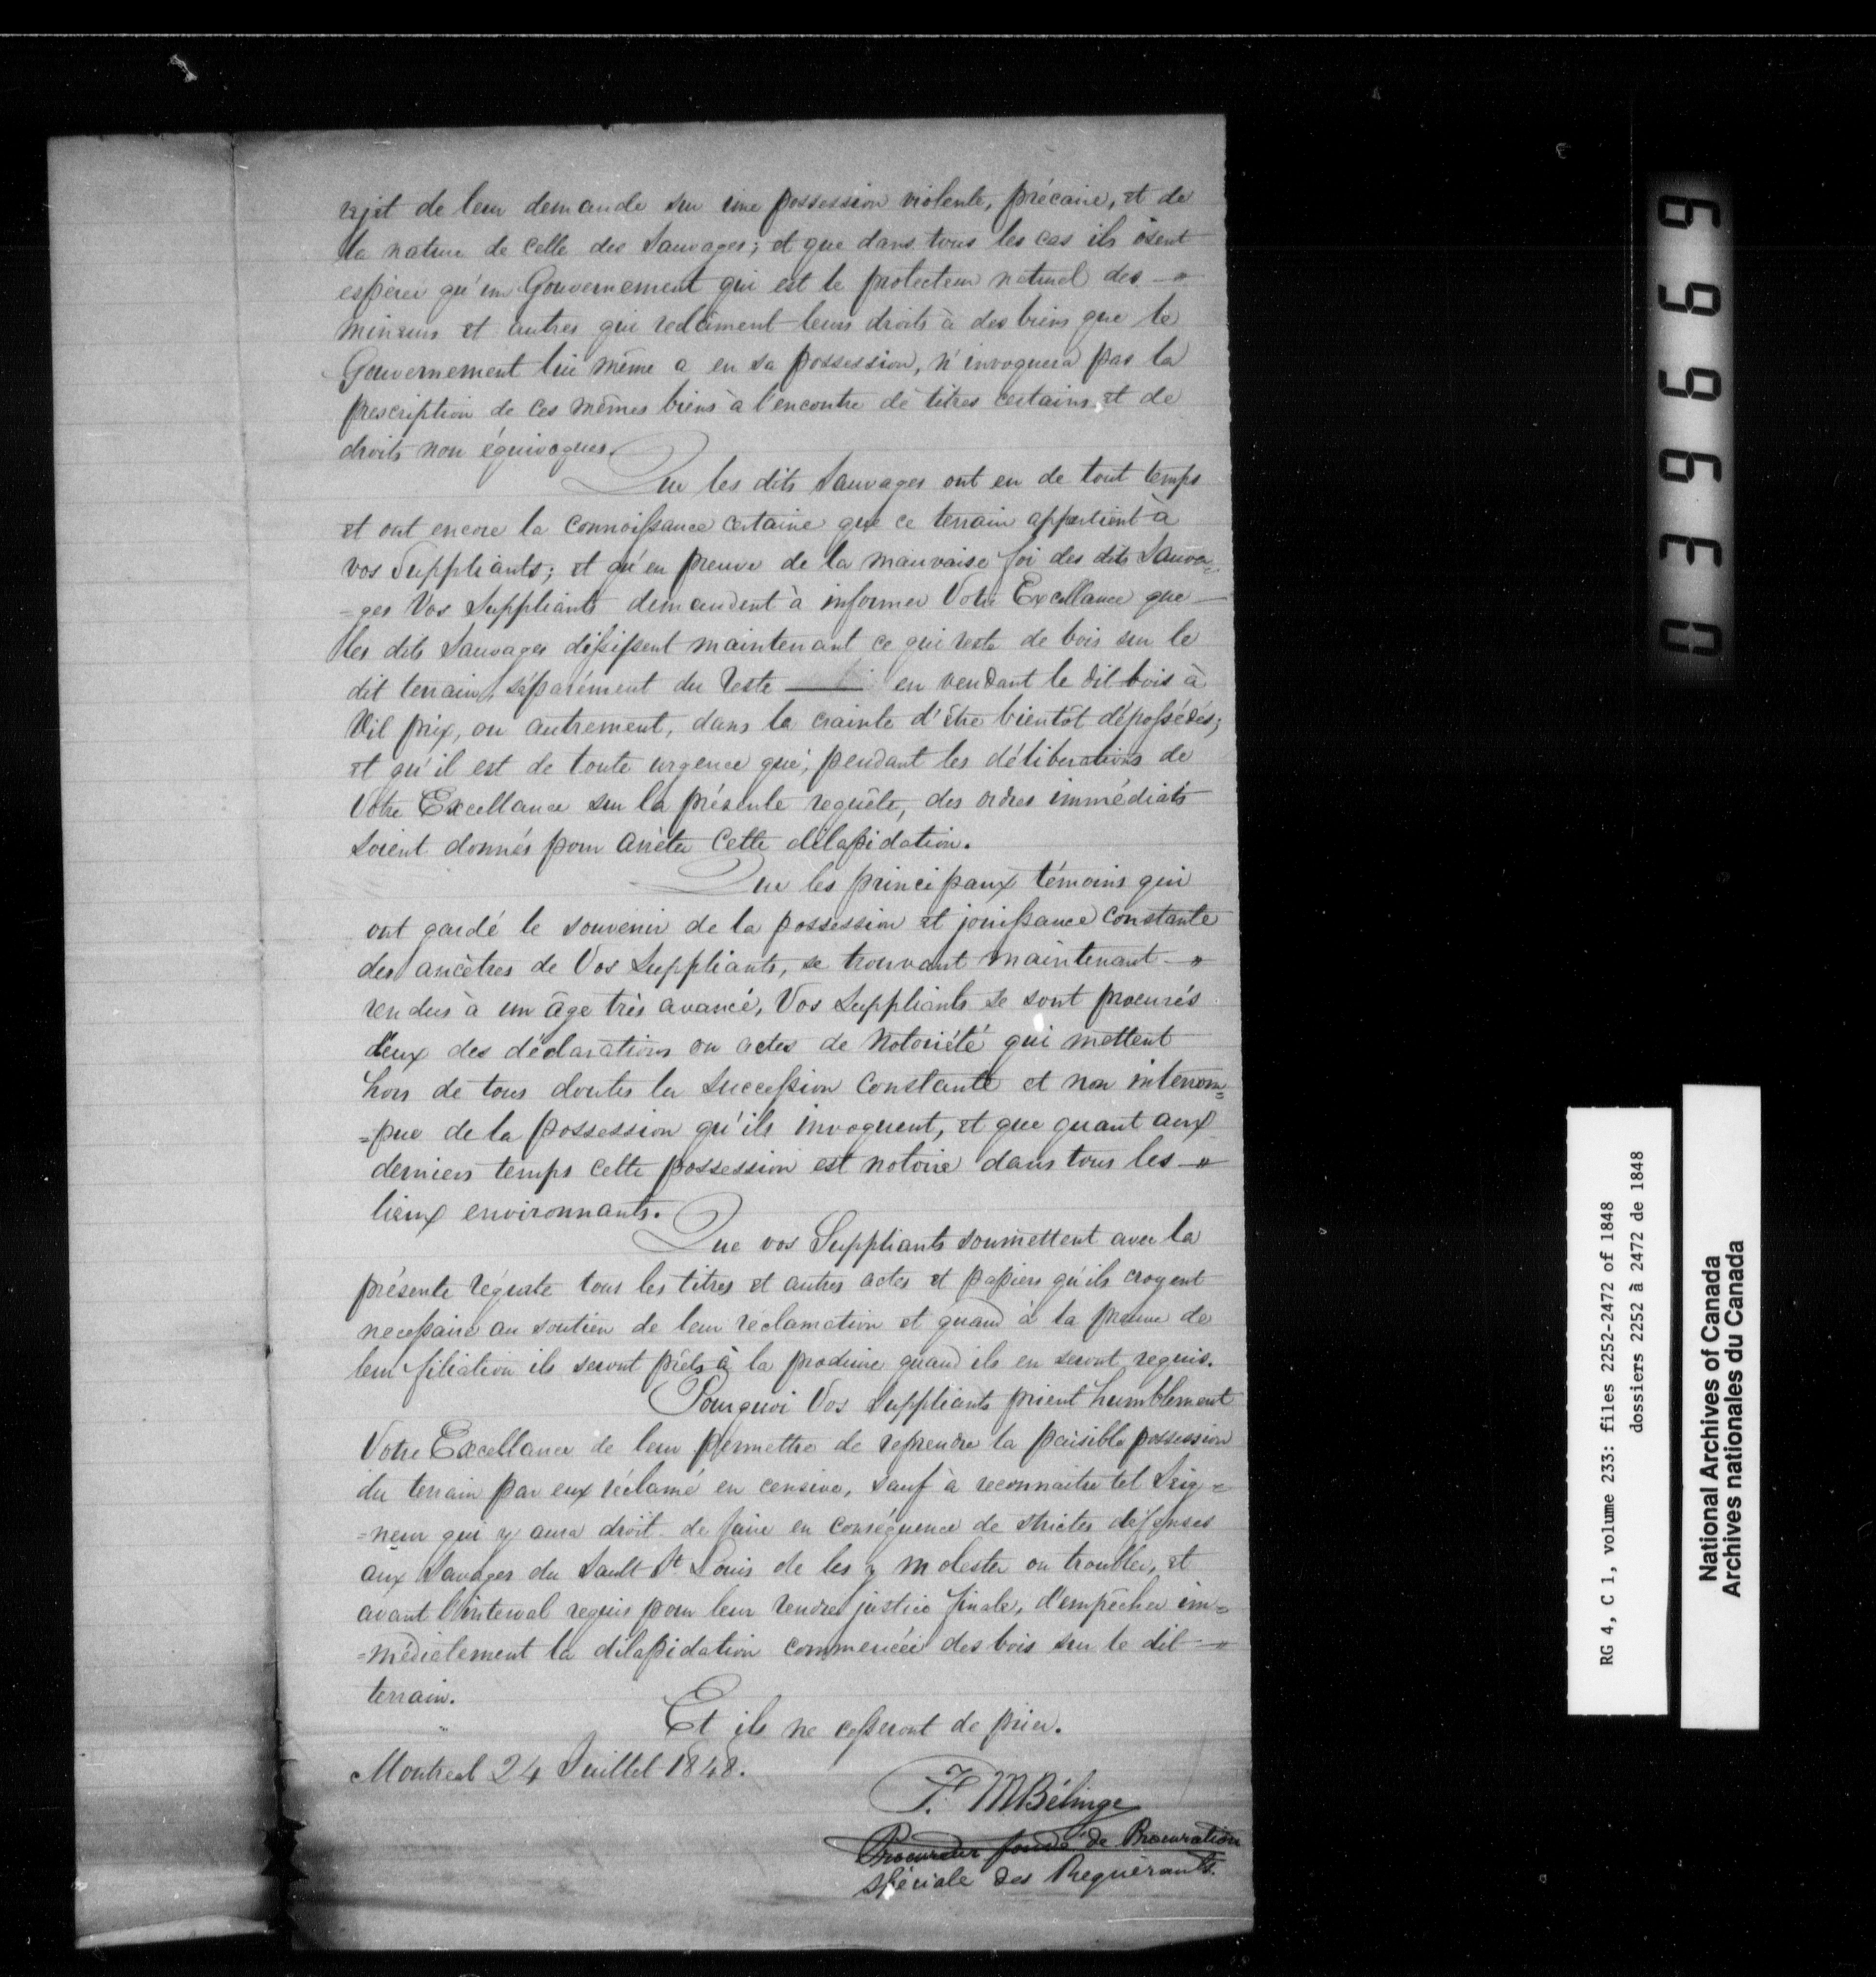 rejet de leur demande sur une possession violente, précaire, et de
la nature de celle des Sauvages; et que dans tous les cas ils osent
espérer qu'un Gouvernement qui est le protecteur naturel des -"
mineurs et autres qui reclâment leurs droits à des biens que le
Gouvernement lui même a en sa possession, n'invoquera pas la
prescription de ces mêmes biens à l'encontre de titres certains et de
droits non équivoques.
Que les dits Sauvages ont eu de tout temps
et ont encore la connoissance certaine que ce terrain appartient à
vos Suppliants; et qu'en preuve de la mauvaise foi des dits Sauva=
=ges Vos Suppliants demandent à informer Votre Excellance que —
les dits Sauvages dissipent maintenant ce qui reste de bois sur le
dit terrain, séparément du reste ——— en vendant le dit bois à
Vil prix, ou autrement, dans la crainte d'être bientôt dépossédés;
et qu'il est de toute urgence que, pendant les délibérations de
Votre Excellance sur la présente requête, des ordres immédiats
soient donnés pour arrêter cette dilapidation.
Que les principaux témoins qui
ont gardé le souvenir de la possession et jouissance constante
des ancètres de Vos Suppliants, se trouvant maintenant -"
rendus à un âge très avancé, Vos Suppliants se sont procurés
d'eux des déclarations ou actes de Notoriété qui mettent
hors de tous doutes la succession constante et non interrom=
=pue de la possession qu'ils invoquent, et que quant aux
derniers temps cette possession est notoire dans tous les -"
lieux environnants.
Que vos Suppliants soumettent avec la
présente réquete tous les titres et autres actes et papiers qu'ils croyent
necessaire au soutien de leur réclamation et quand à la preuve de
leur filiation ils seront prêts à la produire quand ils en seront requis.
Pourquoi Vos Suppliants prient humblement
Votre Excellance de leur permettre de reprendre la paisible possession
du terrain par eux réclamé en censive, sauf à reconnaitre tel Seig=
=neur qui y aura droit de faire en conséquence de strictes défenses
aux Sauvages du Sault St Louis de les y molester ou troubler, et
avant l'interval requis pour leur rendre justice finale, d'empêcher im=
=médiatement la dilapidation commencée des bois sur le dit -"
terrain.
Et ils ne cesseront de prier.
Montreal 24 Juillet 1848.
F. M Bélinge
Procureur fondé de Procuration
spéciale des Requérants.
039669
RG 4, C 1, volume 233: files 2252-2472 of 1848
dossiers 2252 à 2472 de 1848
National Archives of Canada
Archives nationales du Canada